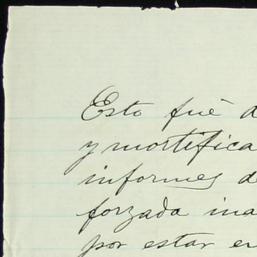 Esto fué d
y mortifica
informes d
forzada ina
por estar en